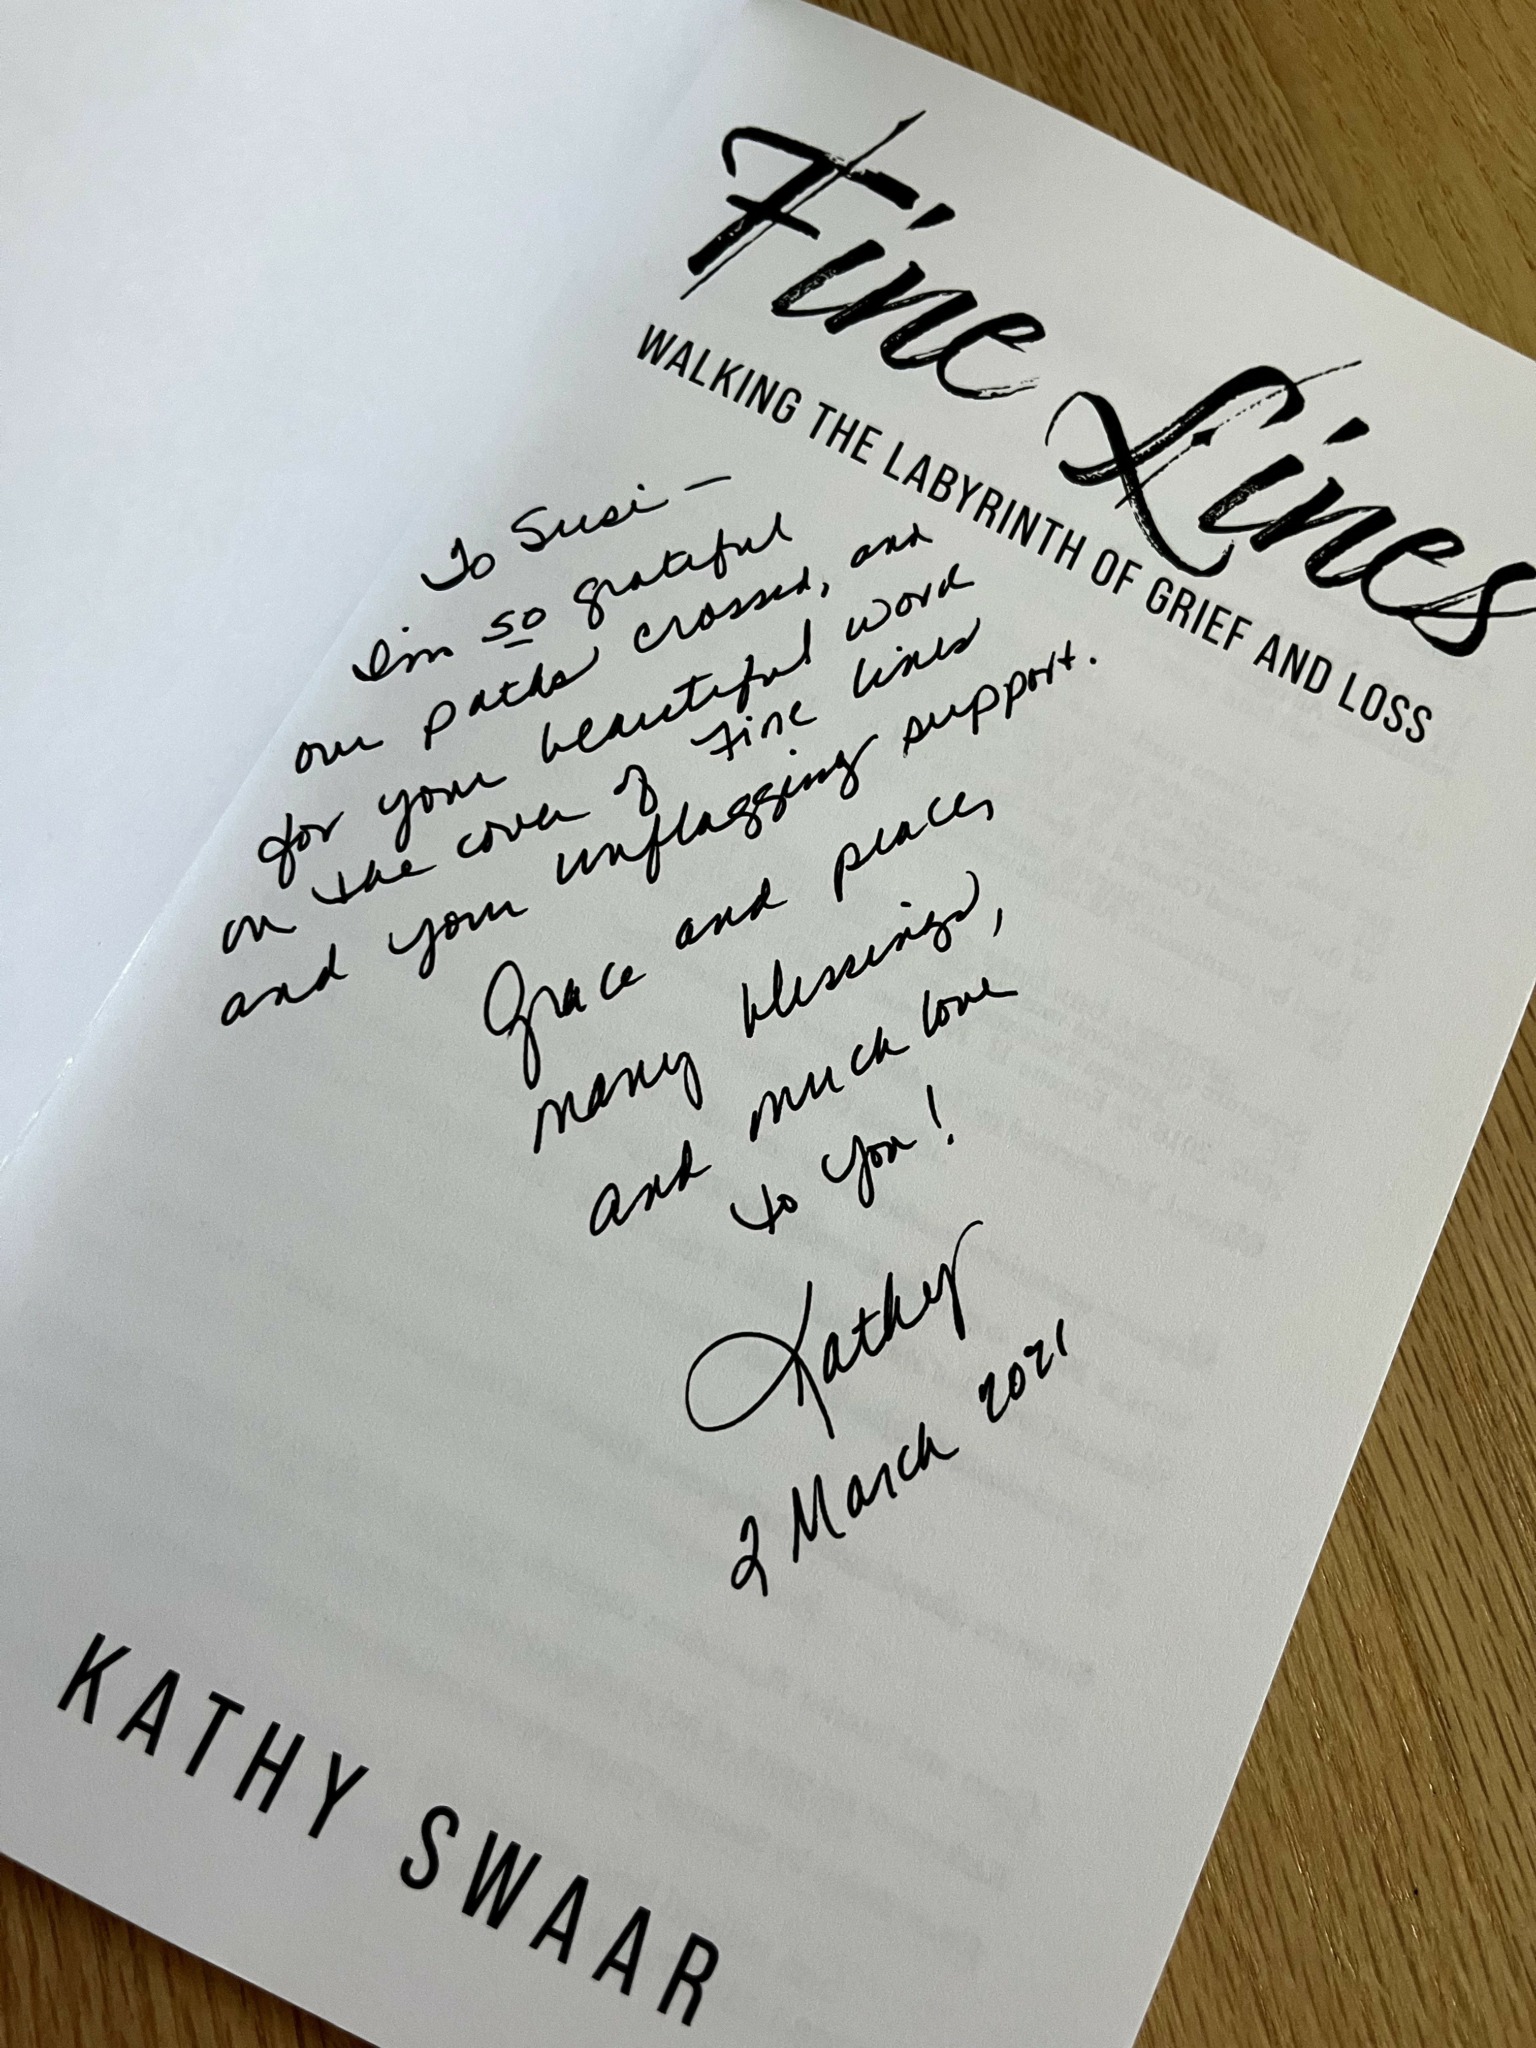 Fine Lines
WALKING THE LABYRINTH OF GRIEF AND LOSS
To Susi —
I'm so grateful
our paths crossed, and
for your beautiful word
on the cover of Fine Lines
and your unflagging support.
Grace and peace,
many blessings,
and much love
to you!
Kathy
2 March 2021
KATHY SWAAR